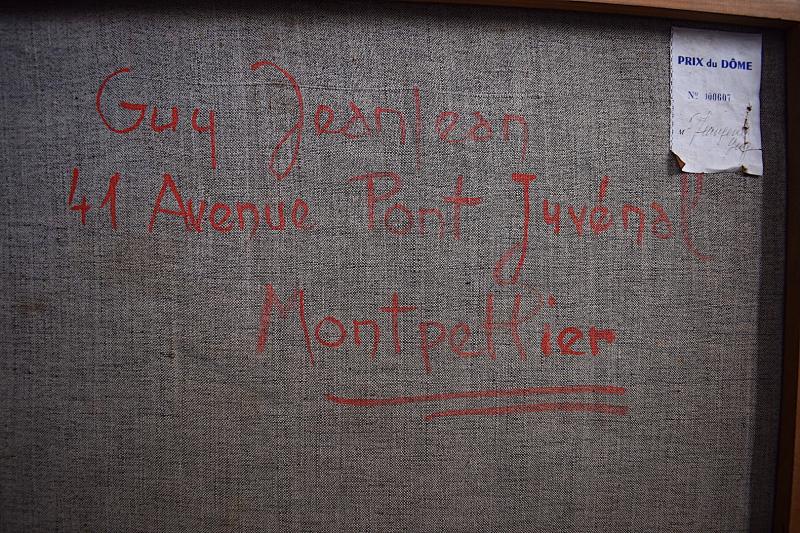 Guy JeanJean
41 Avenue Pont Juvénal
Montpellier
PRIX du DÔME
Nº 000607
M